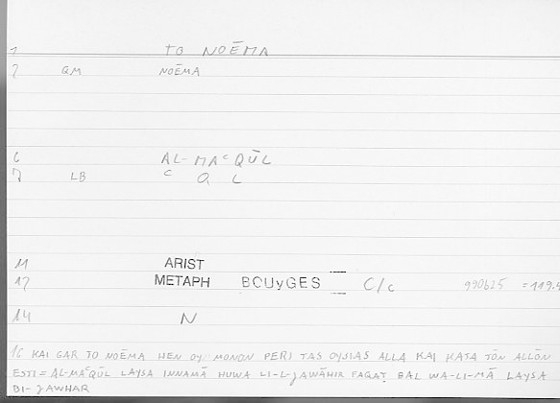 1 TO NOĒMA
2 GM NOĒMA
6 AL-MAᶜQŪL
7 LB ᶜ Q L
11 ARIST
12 METAPH BOUyGES C/c 990b25 = 119.4
14 N
16 KAI GAR TO NOĒMA HEN OY MONON PERI TAS OYSIAS ALLA KAI KATA TŌN ALLŌN
ESTI = AL-MAᶜQŪL LAYSA INNAMĀ HUWA LI-L-JAWĀHIR FAQAṬ BAL WA-LI-MĀ LAYSA
BI-JAWHAR